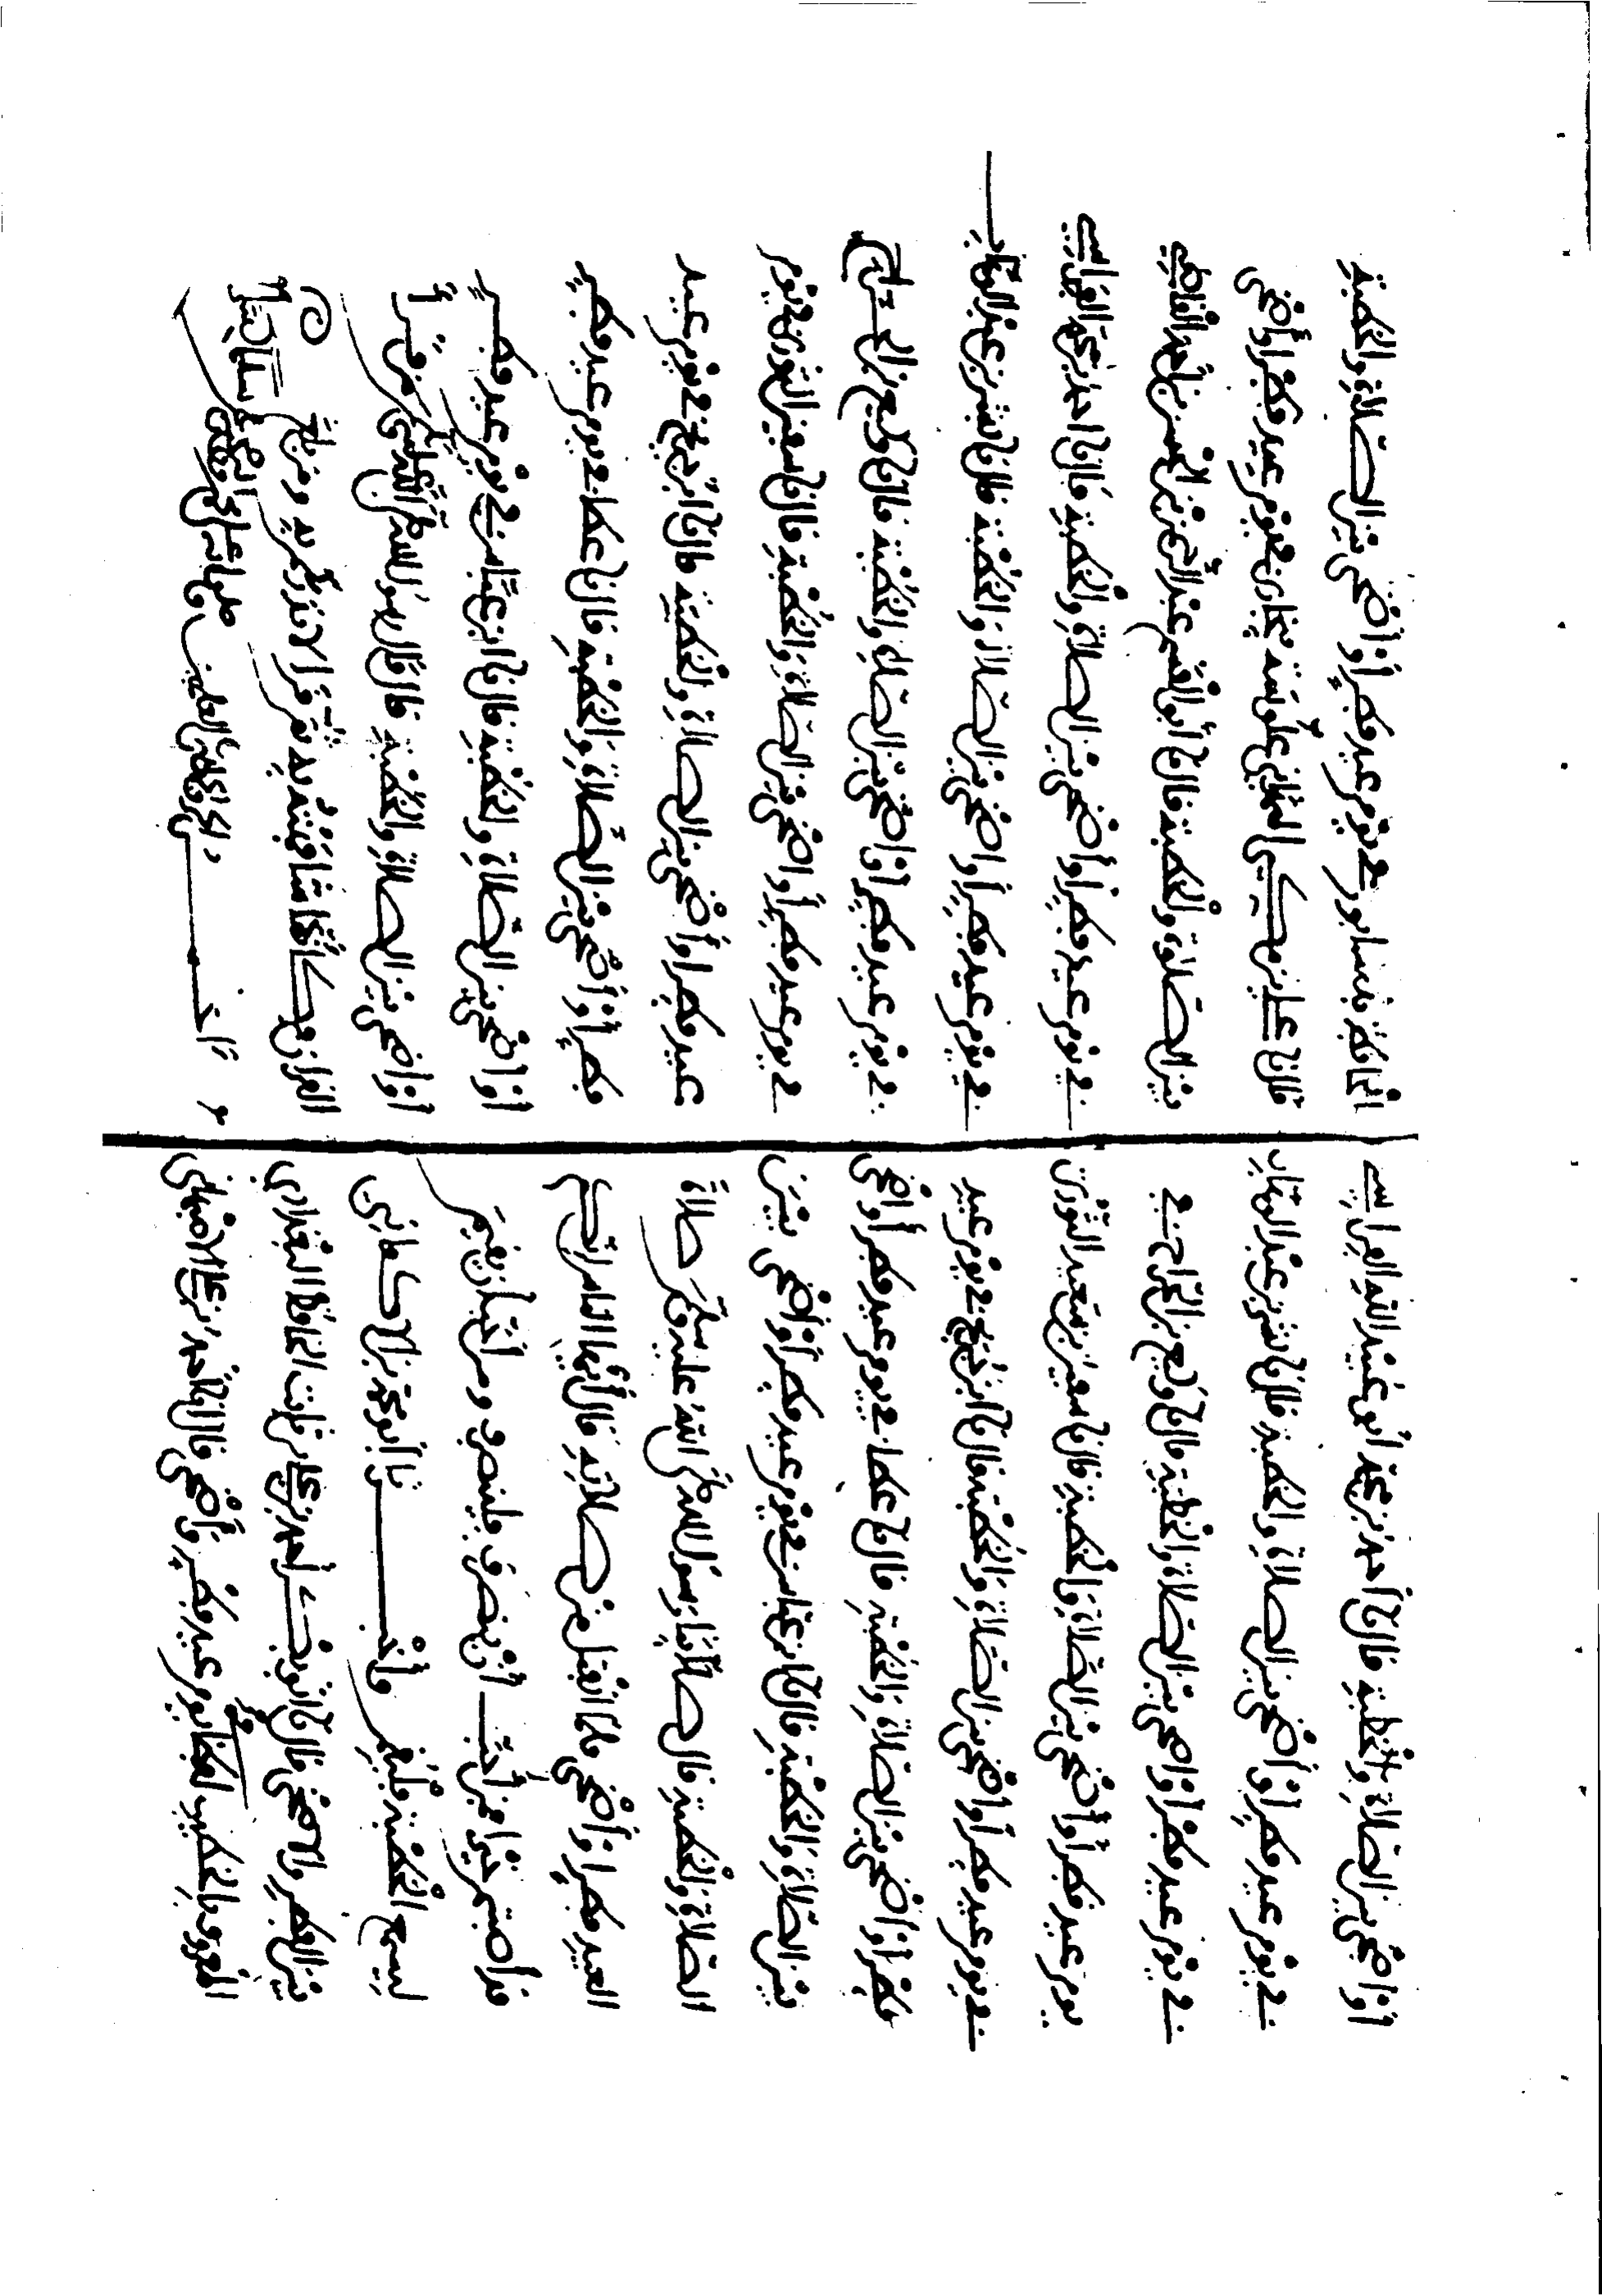 أو أضحى بين الصلاة والخطبة قال نا أحمد بن محمد أبو عبيد الله الفراسي
في يوم عيد فطر أو أضحى بين الصلاة والخطبة قال نا بشر بن عبد الوهاب
في يوم عيد فطر أو أضحى بين الصلاة والخطبة قال نا وكيع بن الجراح في
يوم عيد فطر أو أضحى بين الصلاة والخطبة قال نا سفين بن سعيد الثوري
في يوم عيد فطر أو أضحى بين الصلاة والخطبة قال نا ابن جريج في يوم عيد
فطر أو أضحى بين الصلاة والخطبة قال نا عطاء في يوم عيد فطر أو أضحى
بين الصلاة والخطبة قال نا ابن عباس في يوم عيد فطر أو أضحى بين
الصلاة والخطبة قال صلا بنا رسول الله صلى الله عليه وسلم صلاة
العيد فطر أو أضحى فلما انفتل من صلاته قال أيها الناس
قد أصبتم خيرا فمن أحب أن ينصرف فلينصرف ومن أحب أن يقيم
ليسمع الخطبة فليقم وأخبرنا أبو محمد بن الأكفاني
بين الفطر والأضحى قال نا أبو بكر أحمد بن علي بن ثابت الحافظ البغدادي
المعروف بالخطيب لفظا يوم عيد فطر وأضحى قال نا أحمد بن علي الأصبهاني
الحافظ بنيسابور في يوم عيد فطر أو أضحى بين الصلاة والخطبة
قال نا علي بن ببخارى في يوم عيد فطر أو أضحى
بين الصلاة والخطبة قال نا أبو القسم عبد الرحمن بن الحسن بن أحمد القاضي
في يوم عيد فطر أو أضحى بين الصلاة والخطبة قال نا احمد بن محمد الفراسي
في يوم عيد فطر أو أضحى بين الصلاة والخطبة قال نا بشر بن عبد الوهاب
في يوم عيد فطر أو أضحى بين الصلاة والخطبة قال نا وكيع بن الجراح
في يوم عيد فطر أو أضحى بين الصلاة والخطبة قال نا سفين الثوري في يوم
عيد فطر أو أضحى بين الصلاة والخطبة قال نا ابن جريج في يوم عيد
فطر أو أضحى بين الصلاة والخطبة قال نا عطاء في يوم عيد فطر
أو أضحى بين الصلاة والخطبة قال نا ابن عباس في يوم عيد فطر
أو أضحى بين الصلاة والخطبة قال قال رسول الله صلى الله عليه وسلم من قرأ
القرآن فكأنما شافهته به ثم قرأ لأنذركم به ومن بلغ
والحمد لله رب العلمين